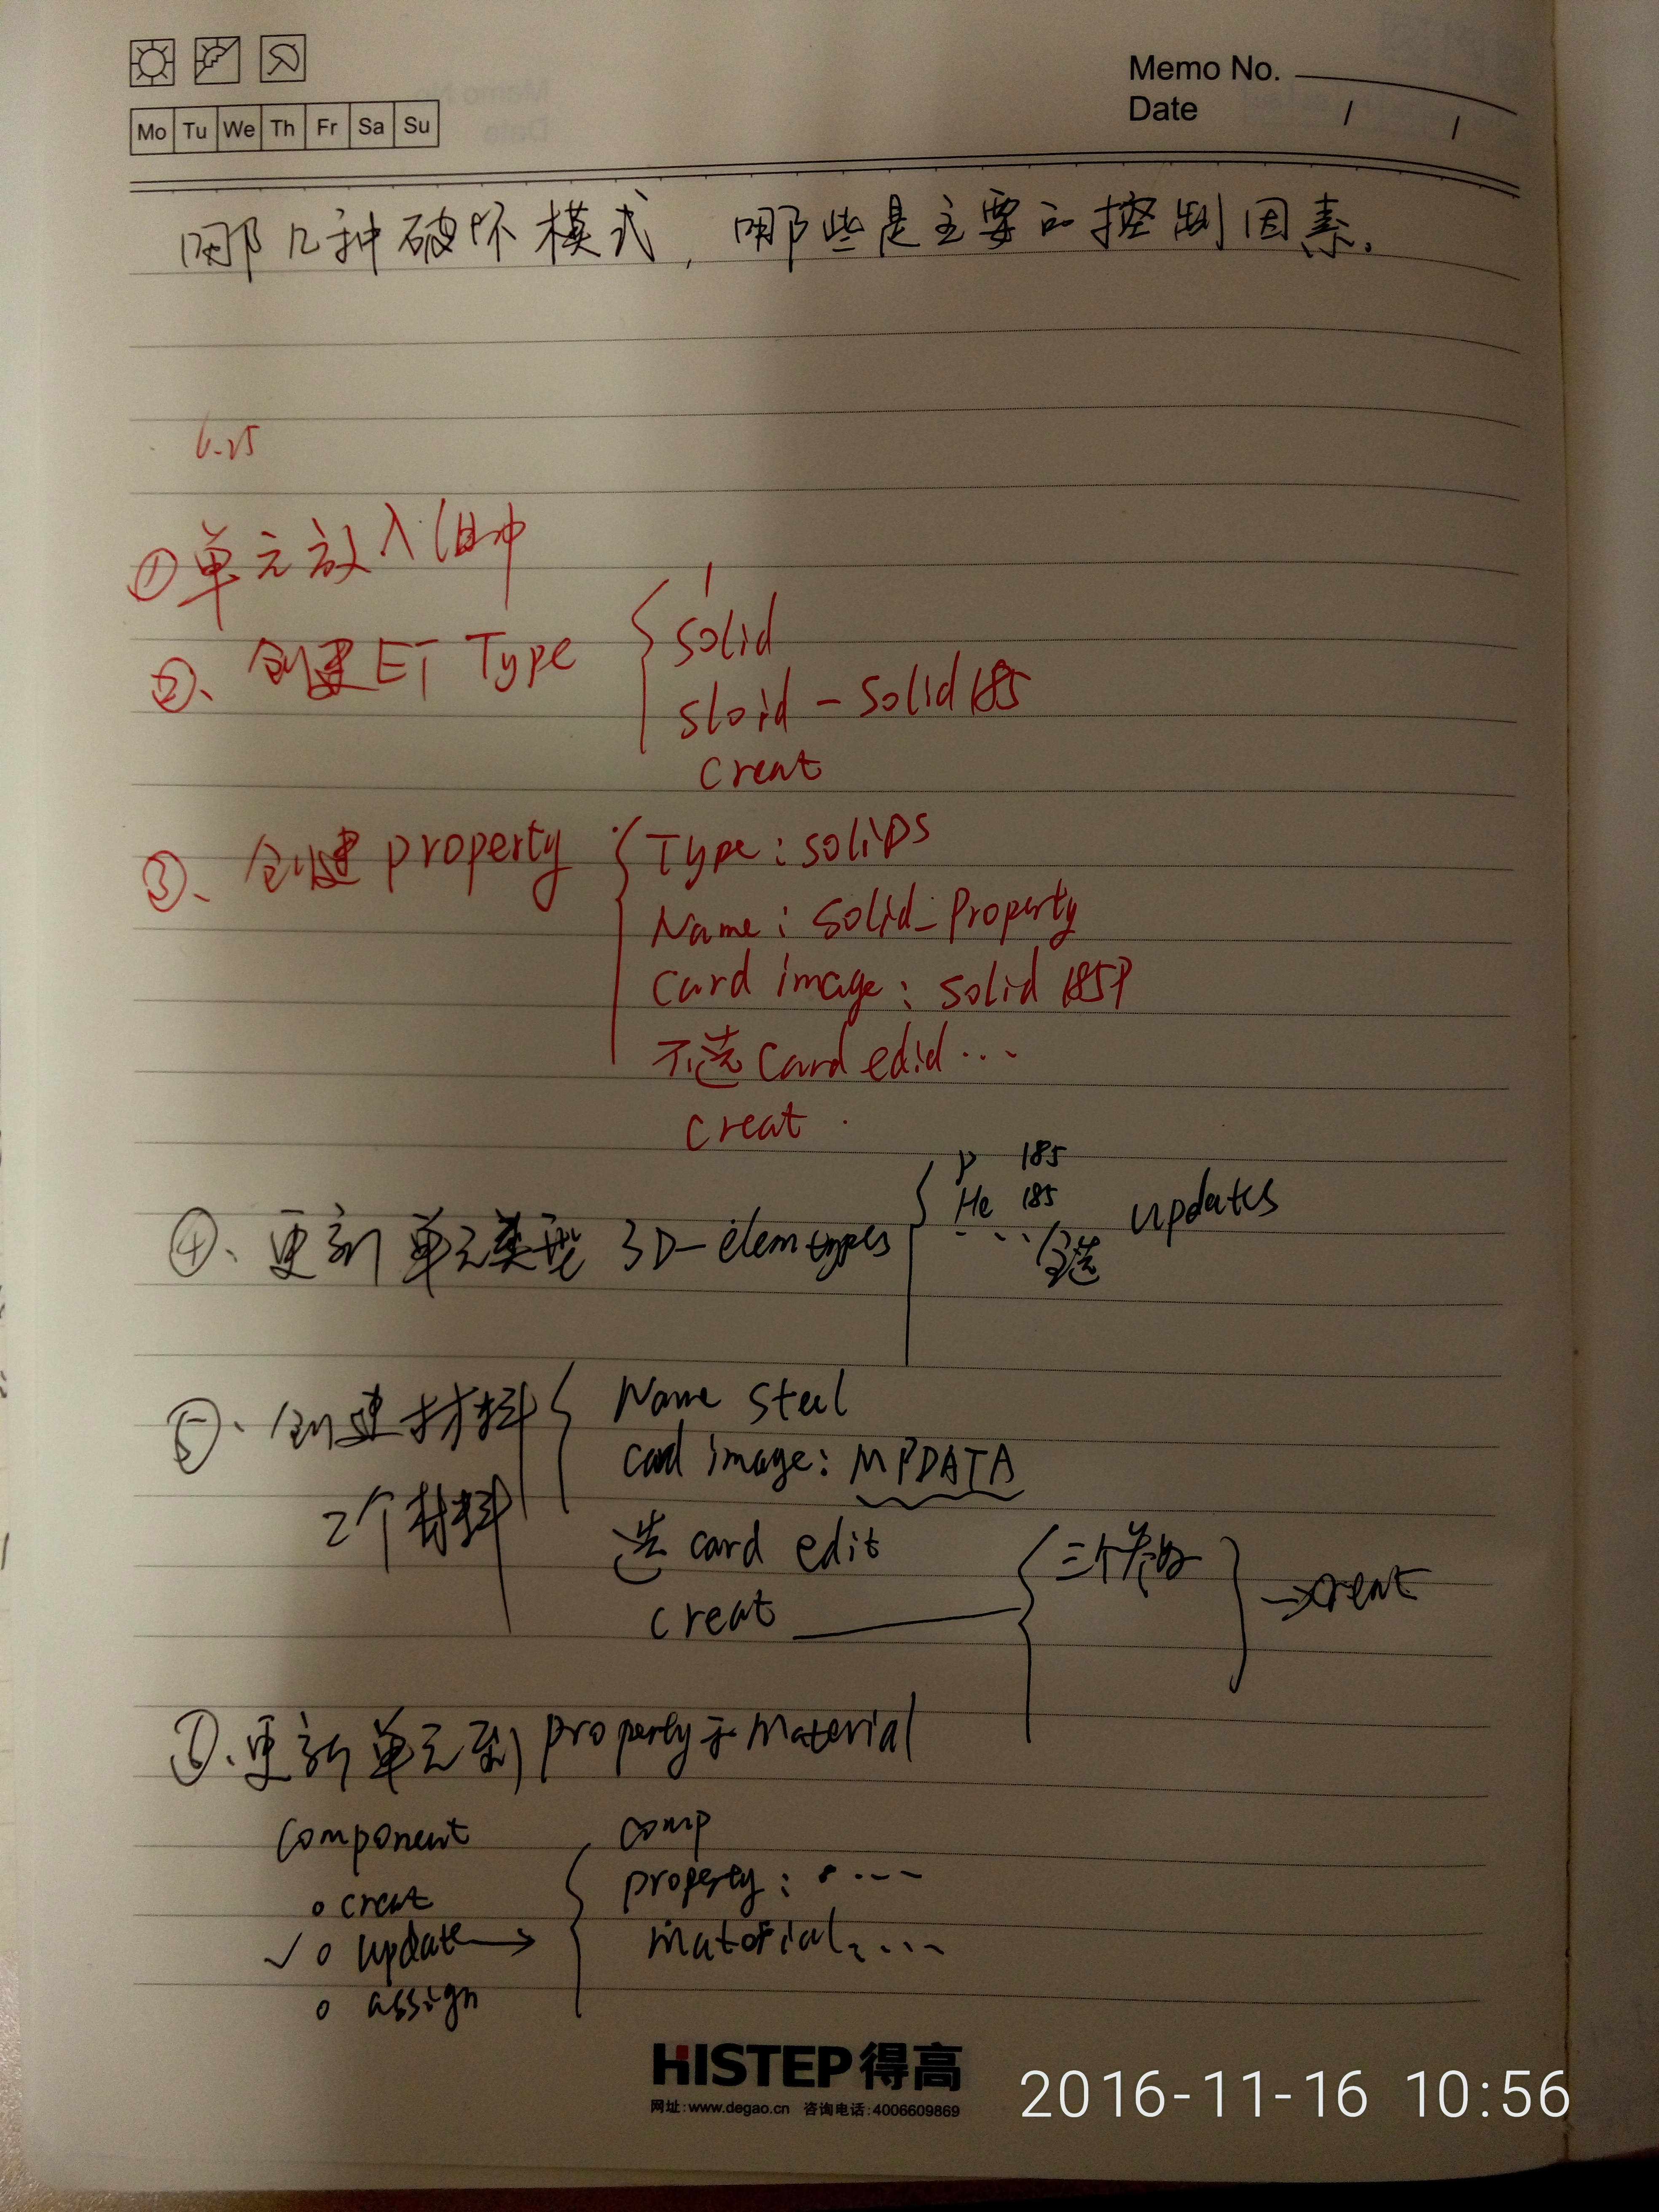 Memo No.
Date / /
Mo Tu We Th Fr Sa Su
哪几种破坏模式，哪些是主要的控制因素.
6.25
①单元放入组中
②、创建ET Type
1
solid
sloid - solid185
creat
③、创建property
Type : soliDs
Name : solid_Property
Card image : solid 185P
不选 Card edid ...
creat
④、更新单元类型 3D-elemtypes
P 185
He 185
... 全选
updates
⑤、创建材料
2个材料
Name steel
card image : MPDATA
选 card edit
creat
三个
→creat
更新单元到property于material
component
creat
✓ update →
assign
comp
property : ....
material : ...
HiSTEP得高
网址:www.degao.cn 咨询电话:4006609869
2016-11-16 10:56